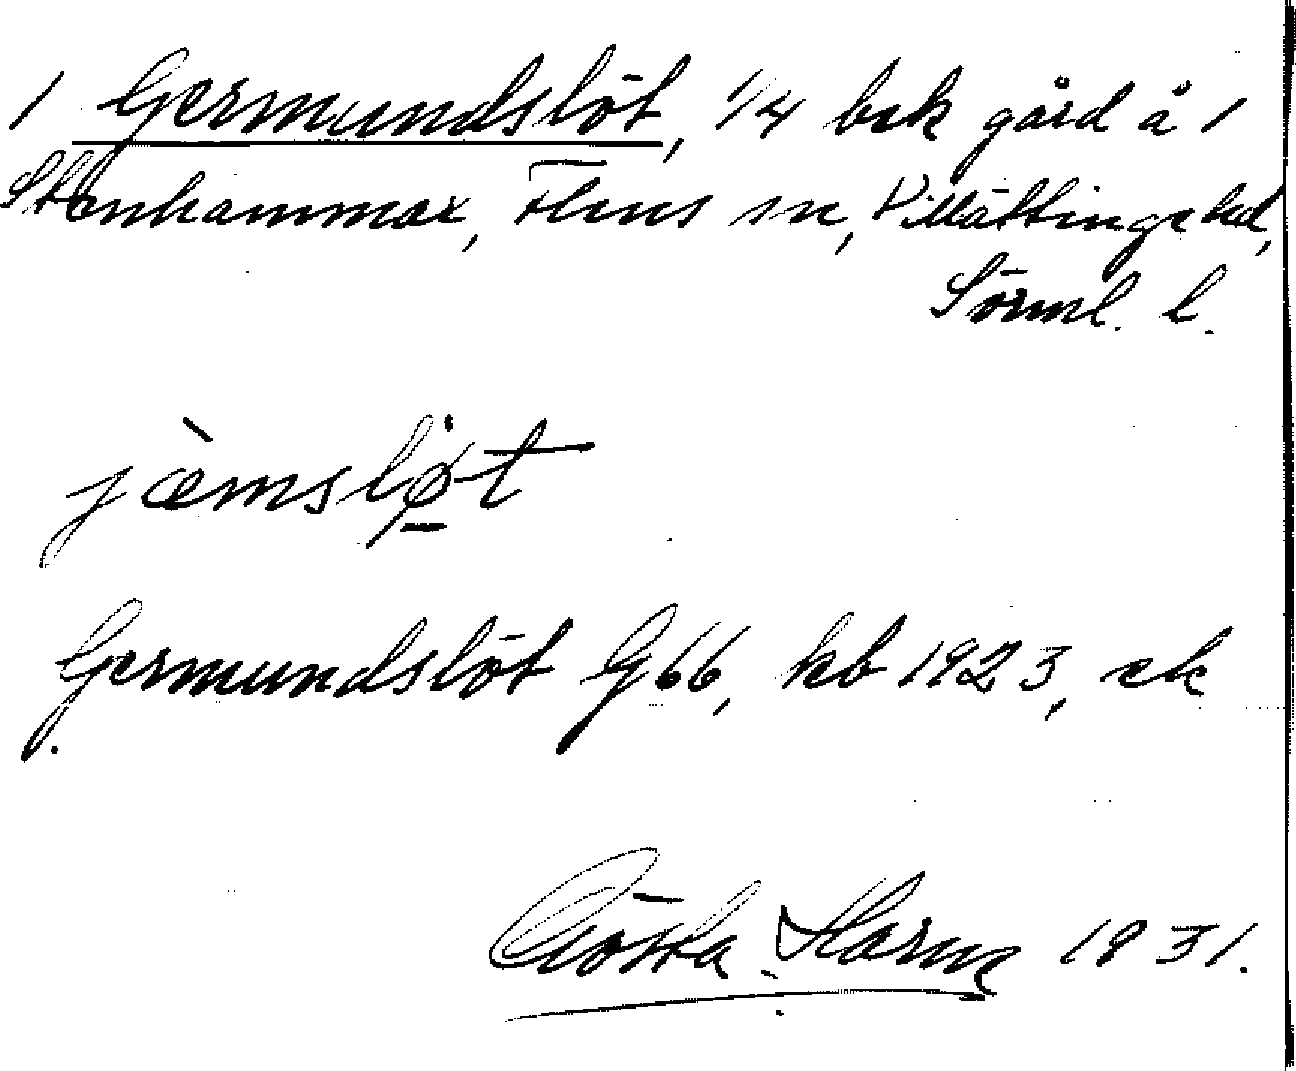 1 Germundslöt, 1/4 bsk gård å 1
Stenhammar, Flens sn, Villåttinge hd,
Sörml. l.
jæ̀msløt
Germundslöt G66, kb 1923, ek
Gösta 1931.